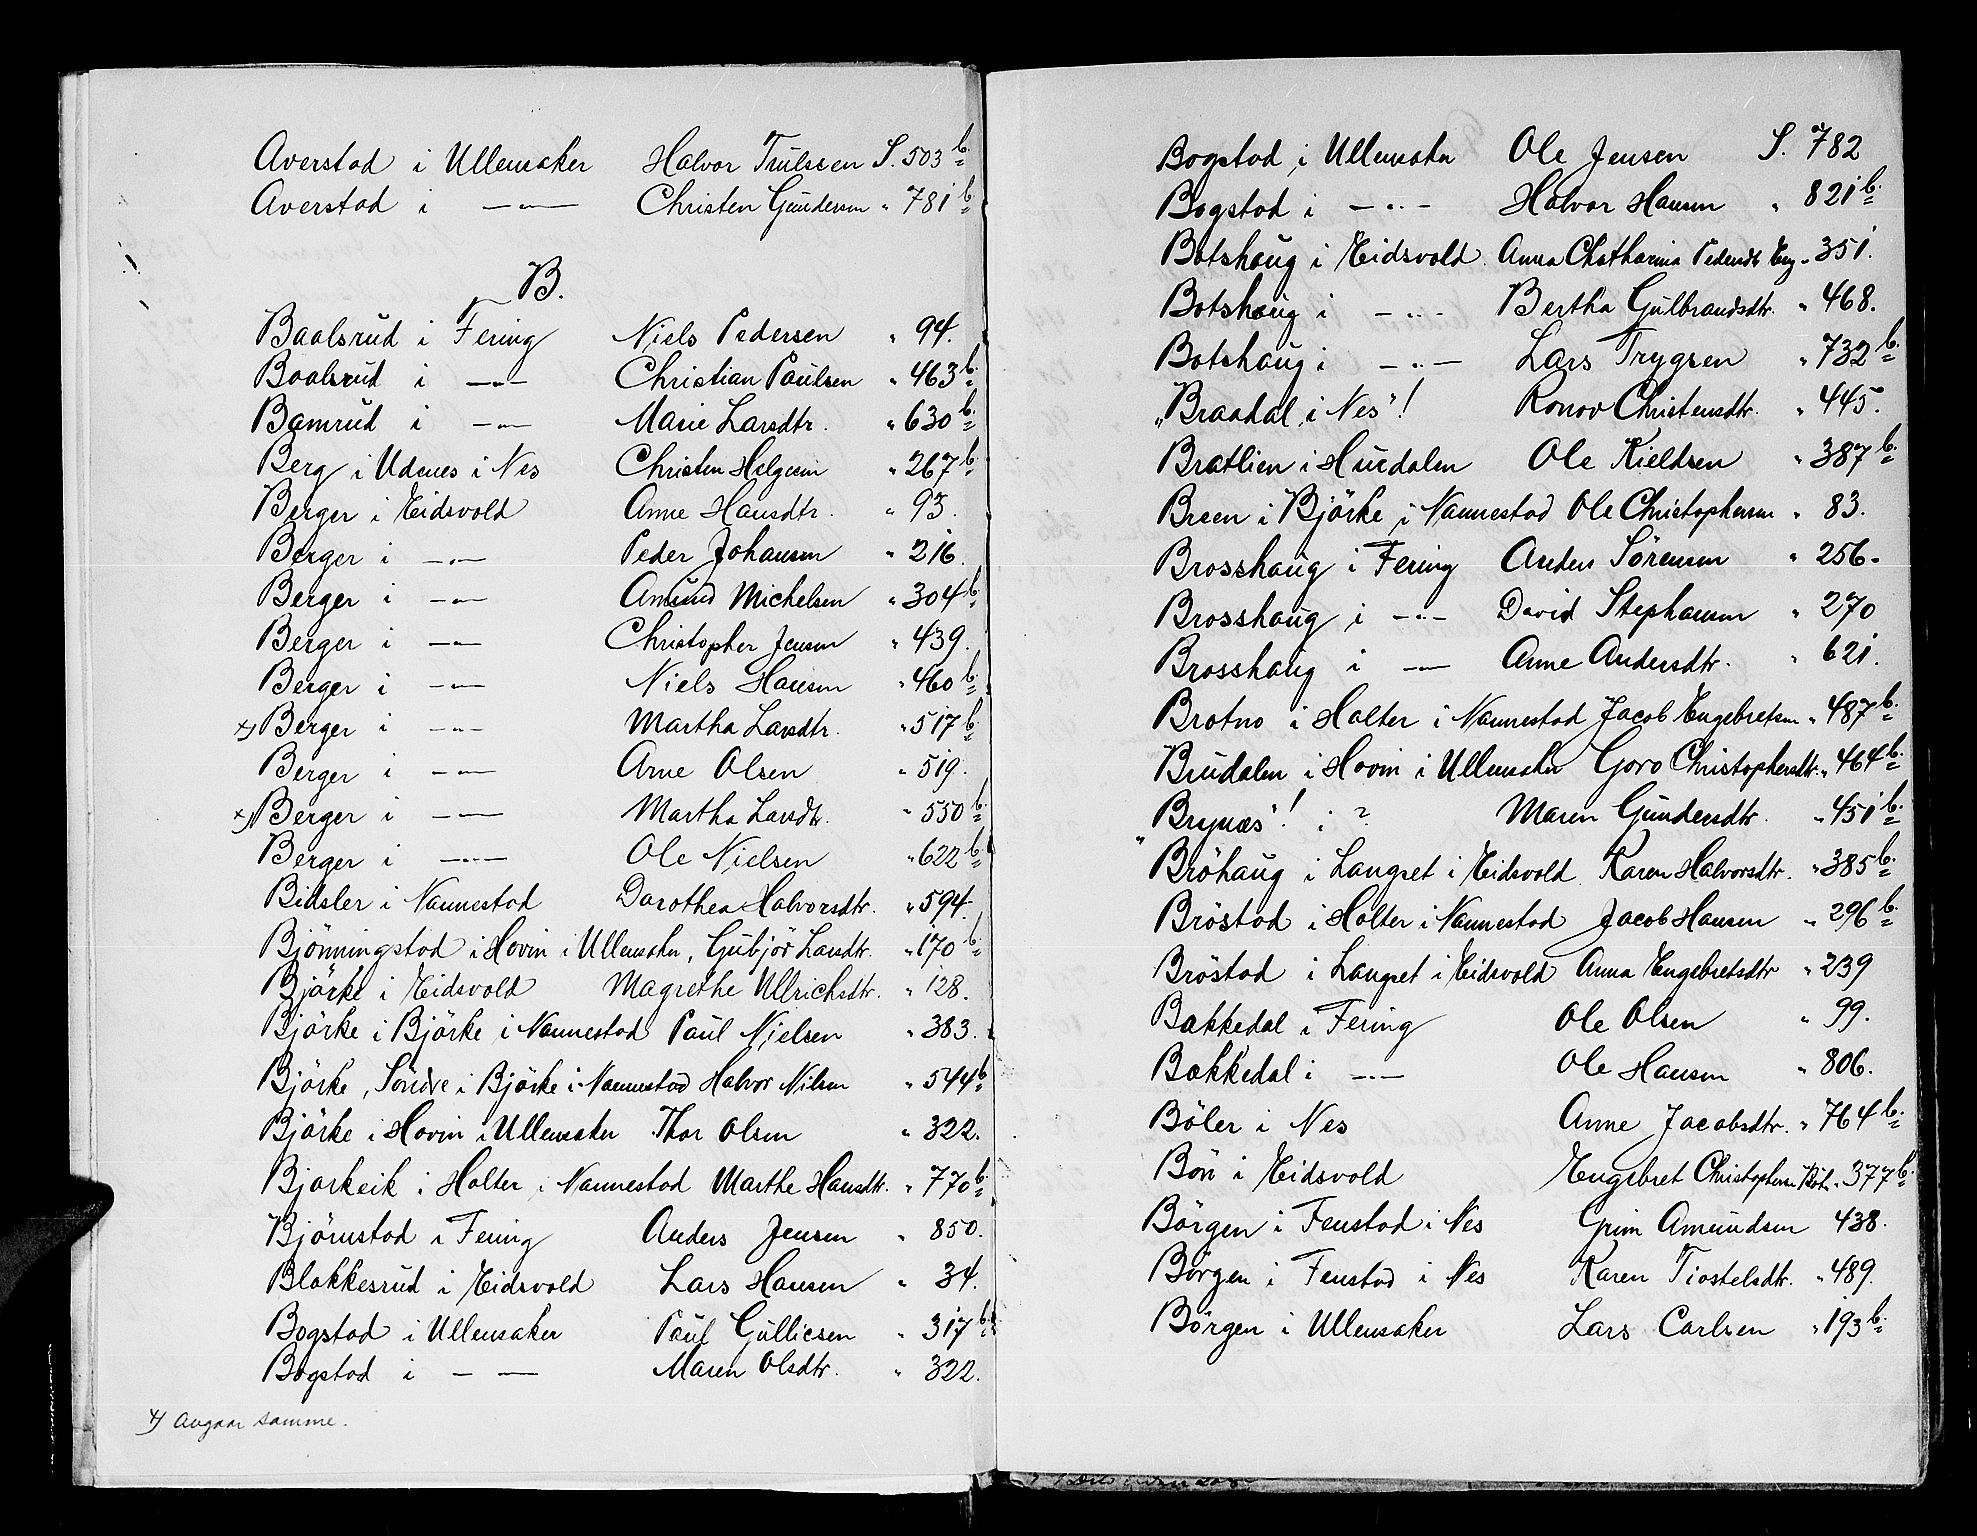 Averstad i Ullensaker Halvor Trulssen S. 503 b.
Averstad i —〃— Christen Gundersen „ 781 b.
B.
Baalsrud i Fering Niels Pedersen „ 94.
Baalsrud i —〃— Christian Paulsen „ 463 b.
Bamrud i —〃— Marie Larsdtr. „ 630 b.
Berg i Udenes i Nes Christen Helgesen „ 267 b.
Berger i Eidsvold Anne Hansdtr. „ 93.
Berger i —〃— Peder Johansen „ 216.
Berger i —〃— Amund Michelsen „ 304 b.
Berger i —〃— Christopher Jensen „ 439.
Berger i —〃— Niels Hansen „ 460 b.
x) Berger i —〃— Martha Larsdtr. „ 517 b.
Berger i —〃— Arne Olsen „ 519.
x) Berger i —〃— Martha Larsdtr. „ 550 b.
Berger i —〃— Ole Nielsen „ 622 b.
Bidsler i Nannestad Dorothea Halvorsdtr. „ 594.
Bjönningstad i Hovin i Ullensaker, Gubjör Larsdtr. „ 170 b.
Bjärke i Eidsvold Magrethe Ullrichsdtr. „ 128.
Björke i Björke i Nannestad Paul Nielsen „ 383.
Björke, Söndre i Björke i Nannestad Halvor Nilsen „ 544 b
Björke i Hovin i Ullensaker Thor Olsen „ 322.
Bjørkeik i Holter i Nannestad Marthe Hansdtr. „ 770 b.
Björnstad i Fering Anders Jensen „ 850.
Blakkesrud i Eidsvold Lars Hansen „ 34.
Bogstad i Ullensaker Paul Gulliesen „ 317 b.
Bogstad i —〃— Maren Olsdtr. „ 322.
x) Angaar samme.
Bogstad i Ullensaker Ole Jensen S. 782
Bogstad i —〃— Halvor Hansen „ 821 b.
Botshaug i Eidsvold Anna Chatharina Pedersdtr Eng „ 351.
Botshaug i —〃— Bertha Gulbrandsdtr. „ 468.
Botshaug i —〃— Lars Trygsen „ 732 b.
„Braadal i Nes"! Ronov Christensdtr. „ 445.
Bratlien i Hurdalen Ole Kieldsen „ 387 b.
Breen i Björke i Nannestad Ole Christophersen „ 83.
Brosshaug i Fering Anders Sörensen „ 256.
Brosshaug i —〃— David Stephansen „ 270
Brosshaug i —〃— Anne Andersdtr. „ 621.
Brotno i Holter i Nannestad Jacob Engebretsen „ 487 b.
Brudalen i Hovin i Ullensaker Goro Christophersdtr. „ 464 b.
„Brynæs"! i ? Maren Gundersdtr. „ 451 b.
Bröhaug i Langset i Eidsvold Karen Halvorsdtr. „ 385 b.
Bröstad i Holter i Nannestad Jacob Hansen „ 296 b.
Bröstad i Langset i Eidsvold Anna Engebretsdtr „ 239
Bækkedal i Fering Ole Olsen „ 99.
Bækkedal i —〃— Ole Hansen „ 806.
Böler i Nes Anne Jacobsdtr. „ 764 b.
Bön i Eidsvold Engebret Christophersen „ 377 b.
Börgen i Fenstad i Nes Grim Amundsen 438.
Börgen i Fenstad i Nes Karen Tiostelsdtr. „ 489.
Börgen i Ullensaker Lars Carlsen „ 193 b.